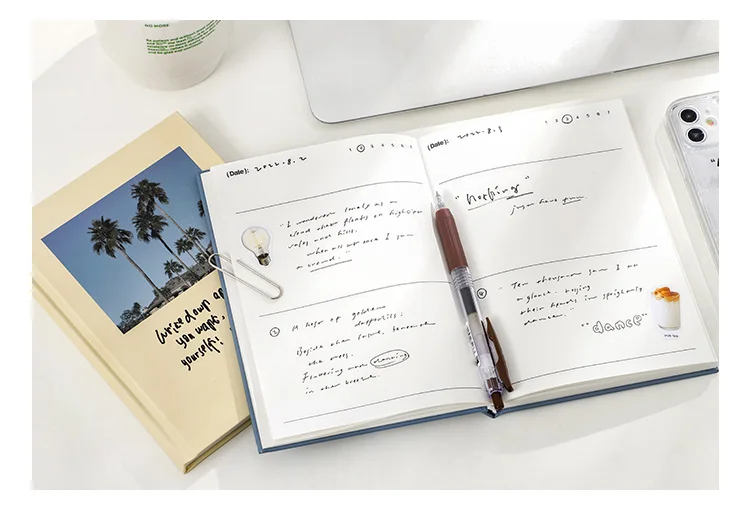 NO MORE
(Date): 2022.8.2
1 2 3 4 5 6 7
"I wandered lonely as a
cloud that floats on high o'er
vales and hills,
when all at once I saw
a crowd."
A host of golden
daffodils;
Beside the lake, beneath
the trees,
Fluttering and dancing
in the breeze.
(Date): 2022.8.3
1 2 3 4 5 6 7
"Nothing"
Ten thousand saw I at
a glance, tossing
their heads in sprightly
dance."
"dance"
write down
you want,
yourself!